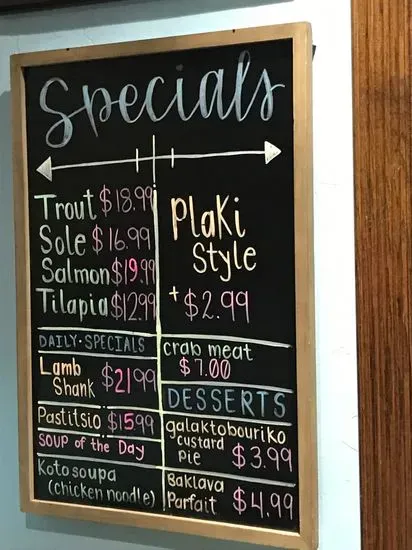 Specials
Trout $18.99
Sole $16.99
Salmon $19.99
Tilapia $12.99
Plaki
Style
+ $2.99
DAILY·SPECIALS
Lamb
Shank $21.99
Pastitsio $15.99
SOUP of the Day
Kotosoupa
(chicken noodle)
crab meat
$7.00
DESSERTS
galaktobouriko
custard
pie $3.99
Baklava
Parfait $4.99